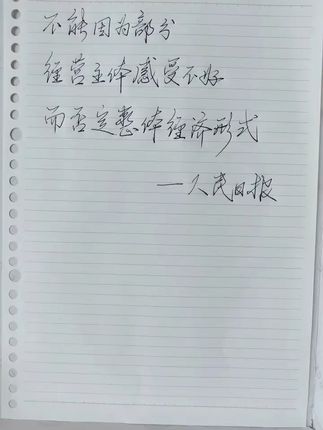 不能因为部分
经营主体感受不好
而否定整体经济形式
—人民日报